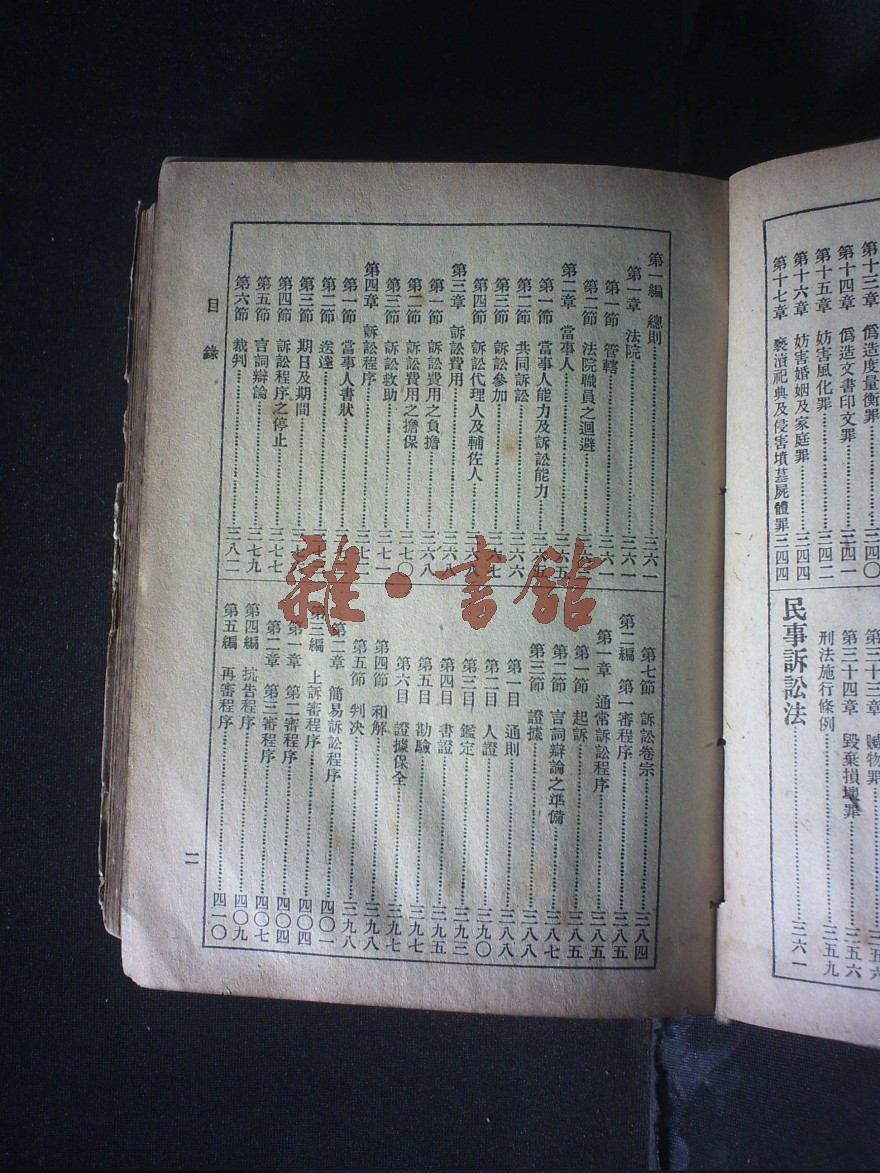 第十三章 僞造度量衡罪……三四〇
第十四章 僞造文書印文罪……三四一
第十五章 妨害風化罪……三四二
第十六章 妨害婚姻及家庭罪……三四四
第十七章 褻瀆祀典及侵害墳墓屍體罪……三四四
第三十三章 贓物罪……三五六
第三十四章 毀棄損壞罪……三五六
刑法施行條例……三五九
民事訴訟法……三六一
第一編 總則……三六一
第一章 法院……三六一
第一節 管轄……三六一
第二節 法院職員之迴避……
第二章 當事人……三六五
第一節 當事人能力及訴訟能力……三六五
第二節 共同訴訟……三六六
第三節 訴訟參加……三六七
第四節 訴訟代理人及輔佐人……
第三章 訴訟費用……三六八
第一節 訴訟費用之負擔……三六八
第二節 訴訟費用之擔保……三七〇
第三節 訴訟救助……三七一
第四章 訴訟程序……
第一節 當事人書狀……
第二節 送達……
第三節 期日及期間……
第四節 訴訟程序之停止……三七七
第五節 言詞辯論……三七九
第六節 裁判……三八二
第七節 訴訟卷宗……三八四
第二編 第一審程序……三八五
第一章 通常訴訟程序……三八五
第一節 起訴……三八五
第二節 言詞辯論之準備……三八七
第三節 證據……三八八
第一目 通則……三八八
第二目 人證……三九〇
第三目 鑑定……三九三
第四目 書證……三九五
第五目 勘驗……三九七
第六目 證據保全……三九七
第四節 和解……三九八
第五節 判决……三九八
第二章 簡易訴訟程序……四〇一
第三編 上訴審程序……四〇四
第一章 第二審程序……四〇四
第二章 第三審程序……四〇七
第四編 抗告程序……四〇九
第五編 再審程序……四一〇
目錄
二
雜·書館